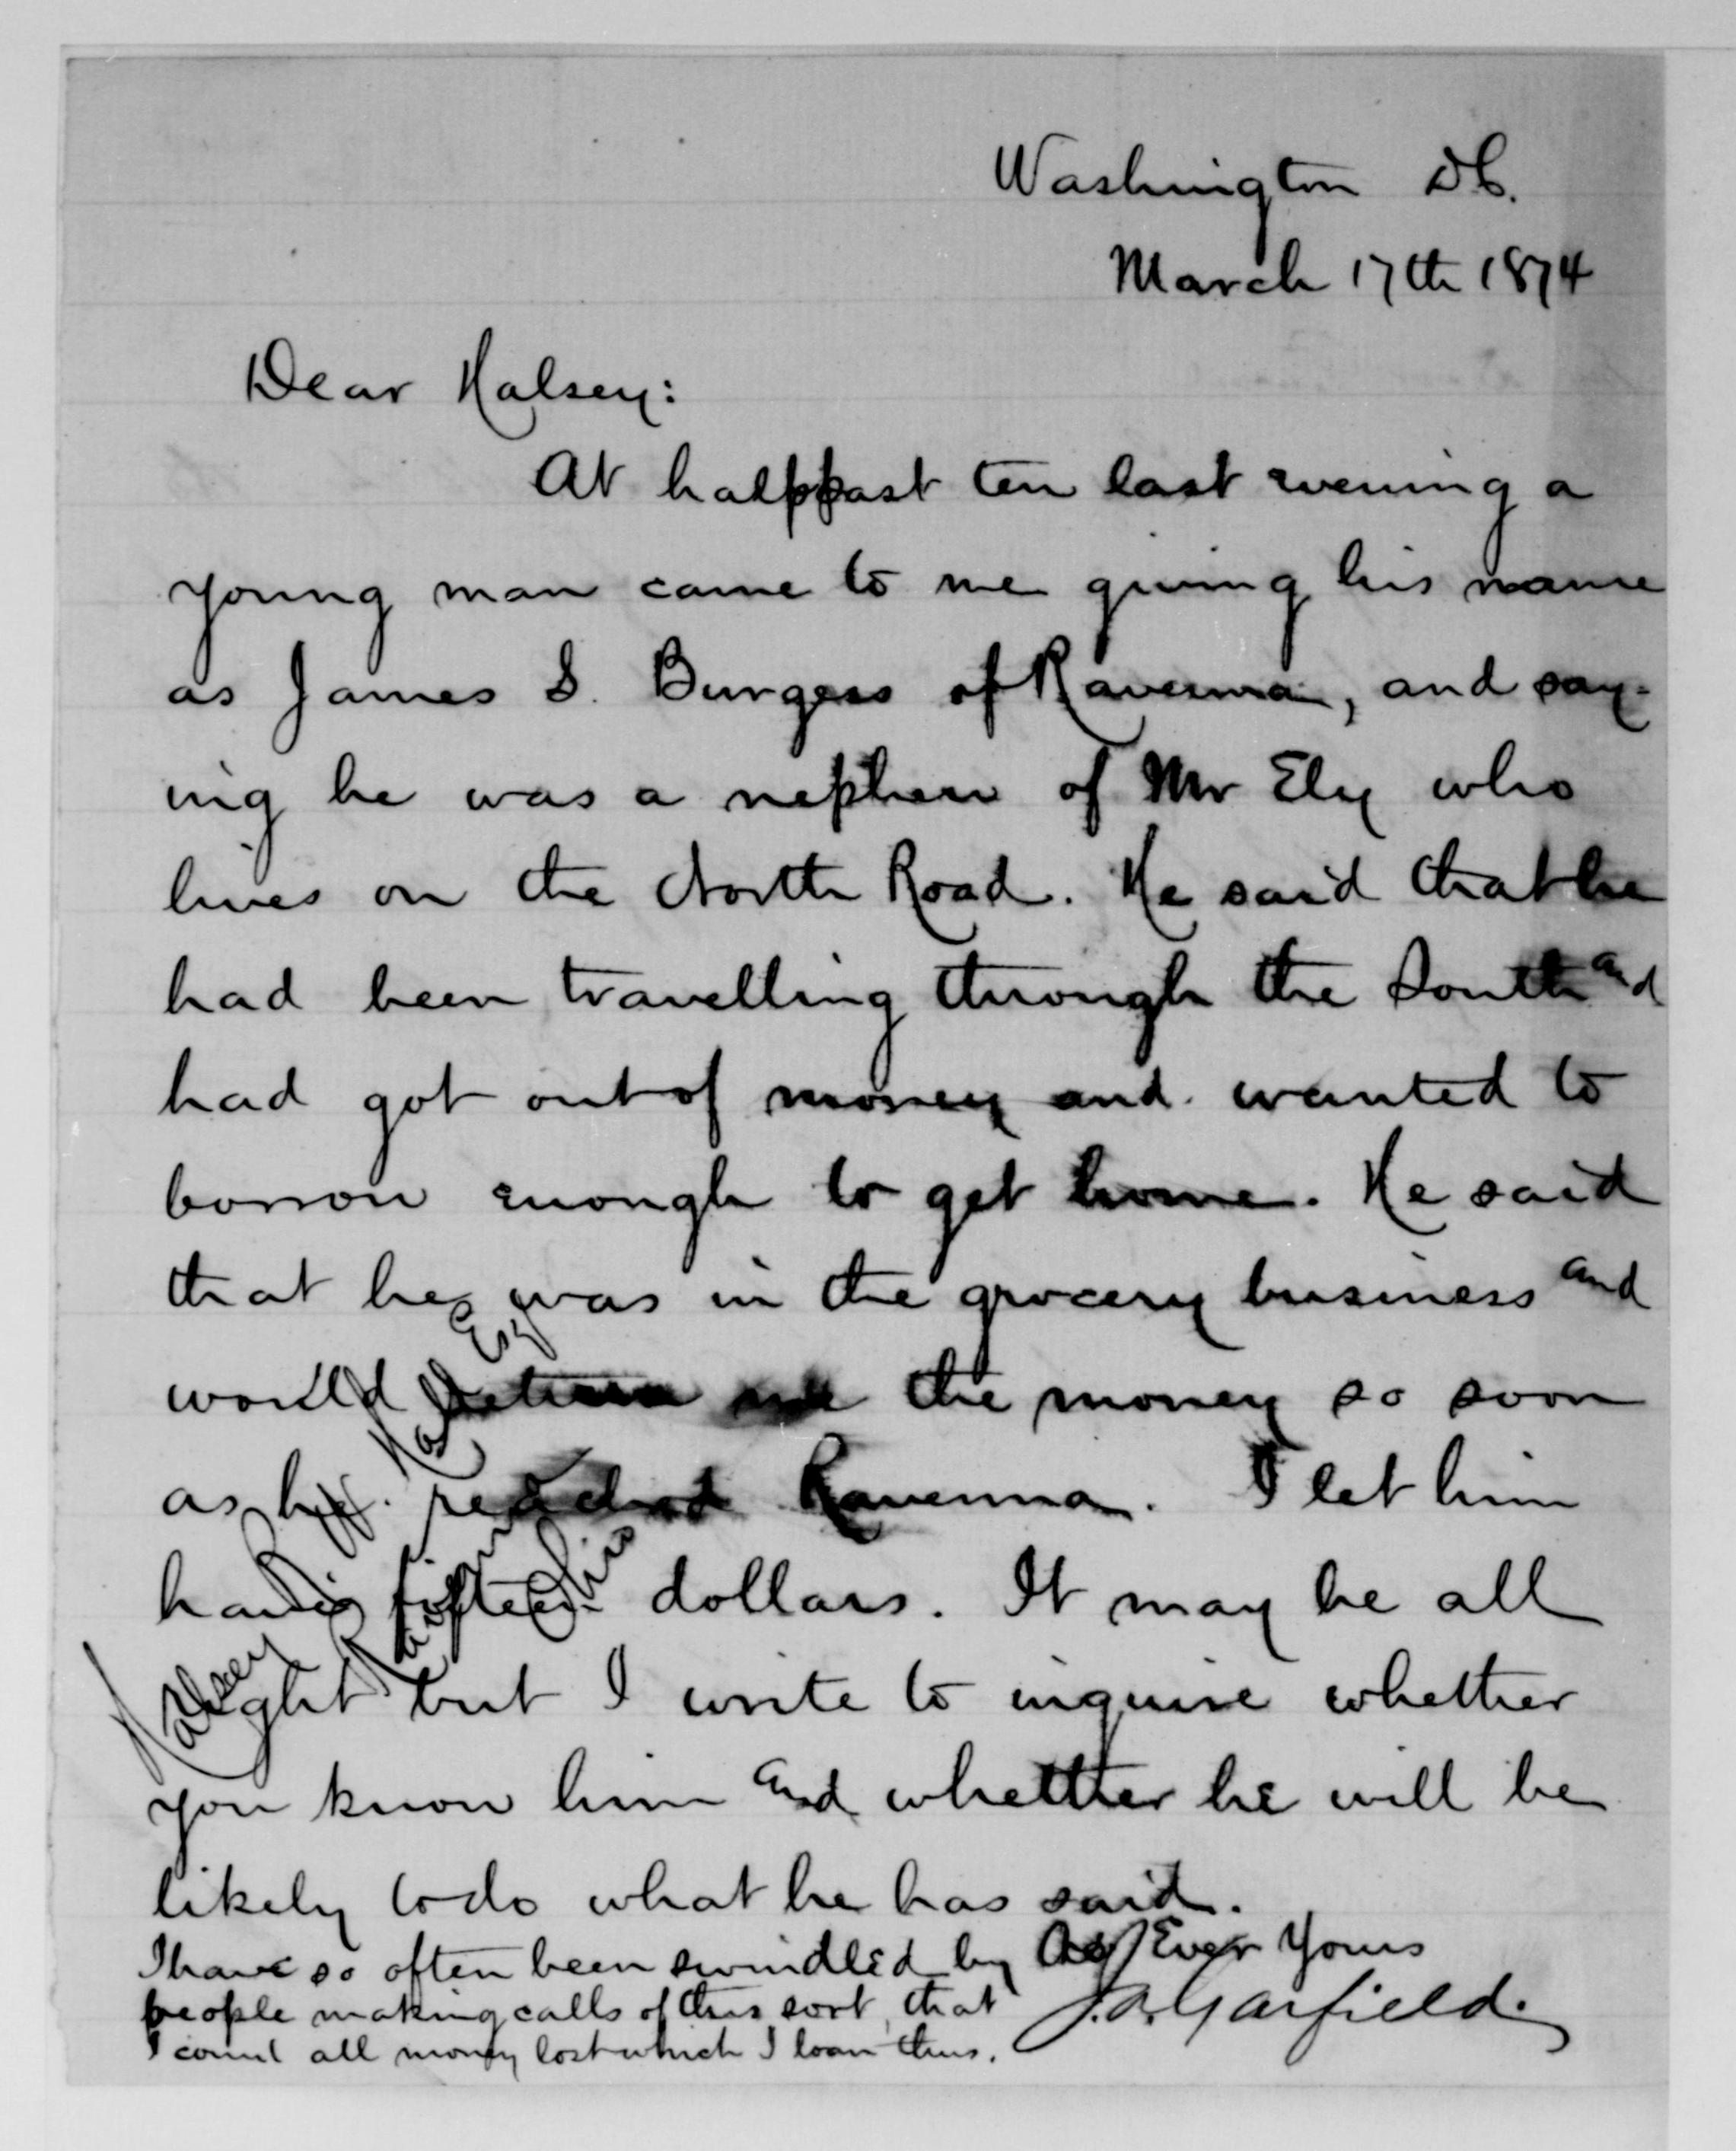 Washington D.C.
March 17th 1874
Dear Halsey:
At halfpast ten last evening a
young man came to me giving his name
as James S. Burgess of Ravenna, and say-
ing he was a nephew of Mr Ely who
lives on the North Road. He said that he
had been travelling through the South and
had got out of money and wanted to
borrow enough to get home. He said
that he was in the grocery business and
would return me the money so soon
as he reached Ravenna. I let him
have fifteen dollars. It may be all
right but I write to inquire whether
you know him and whether he will be
likely to do what he has said.
I have so often been swindled by
people making calls of this sort, that
I count all money lost which I loan thus.
As Ever Yours
J. A. Garfield.
Halsey Hall Esq
Ravenna
Ohio